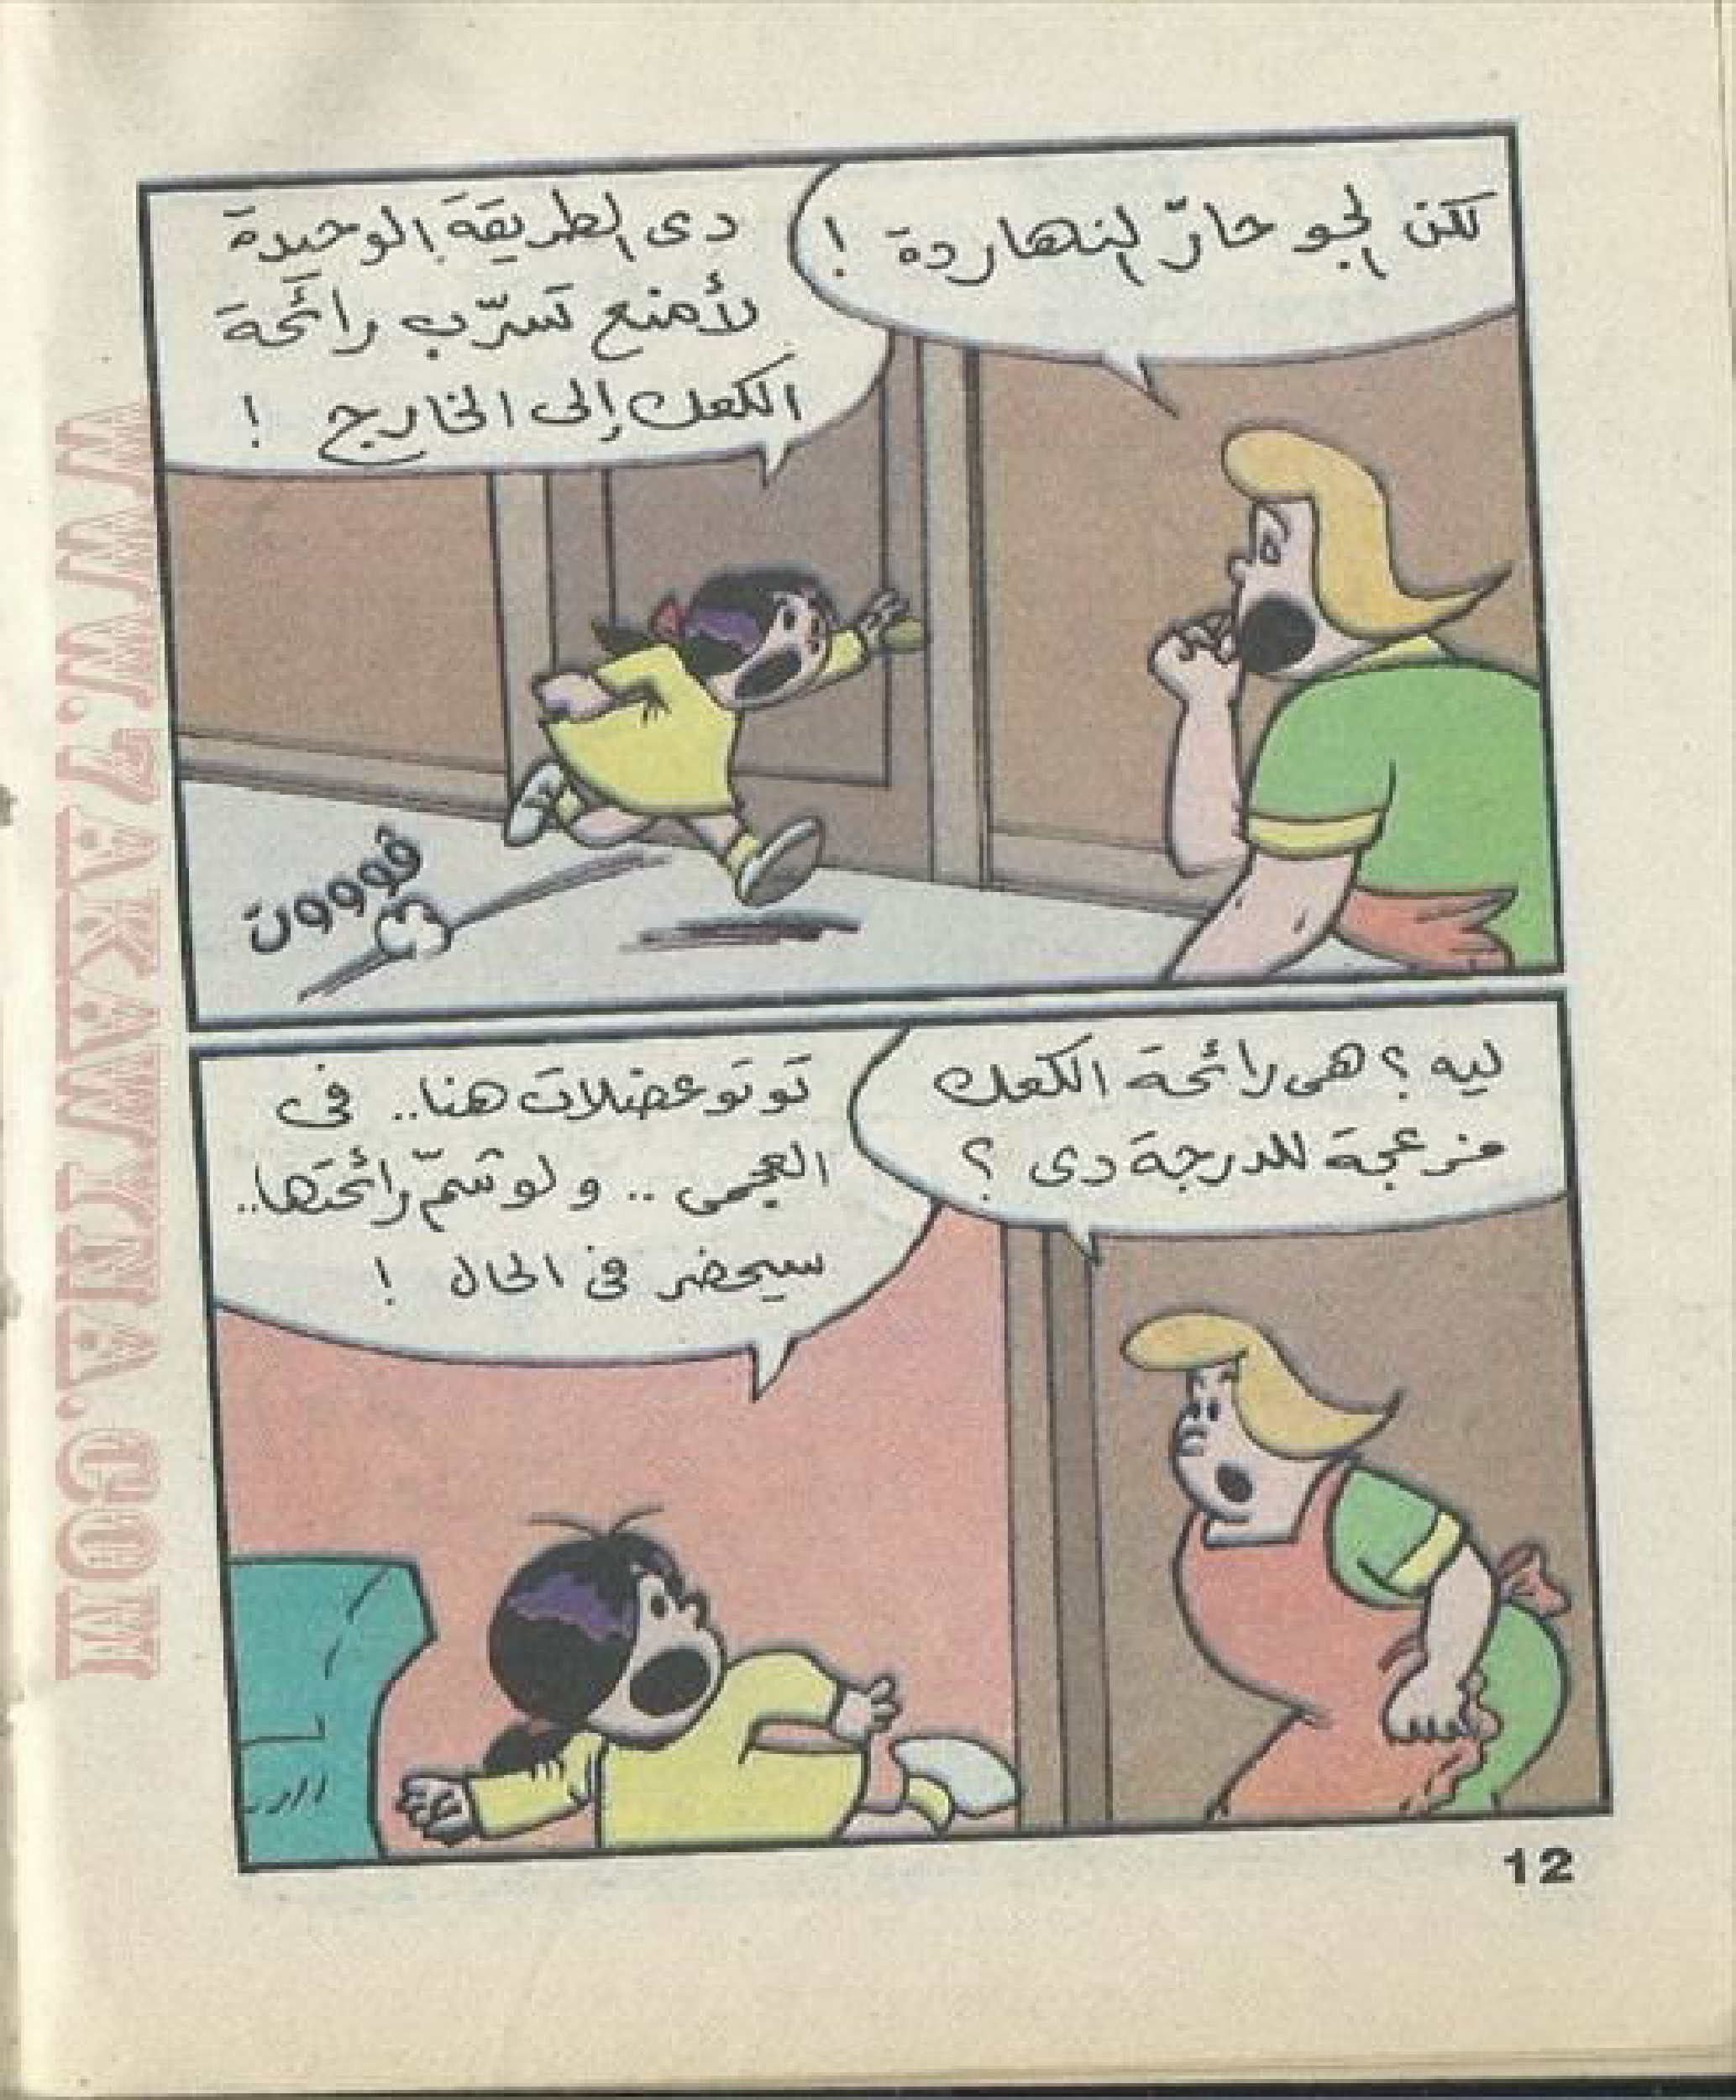 لكن الجو حارّ النهاردة !
دى الطريقة الوحيدة
لأمنع تسرّب رائحة
الكعك إلى الخارج !
ڤوووت
ليه؟ هى رائحة الكعك
مزعجة للدرجة دى ؟
توتو عضلات هنا.. فى
العجمى .. ولو شمّ رائحتها..
سيحضر فى الحال !
12
WWW.7AKAWITNA.COM